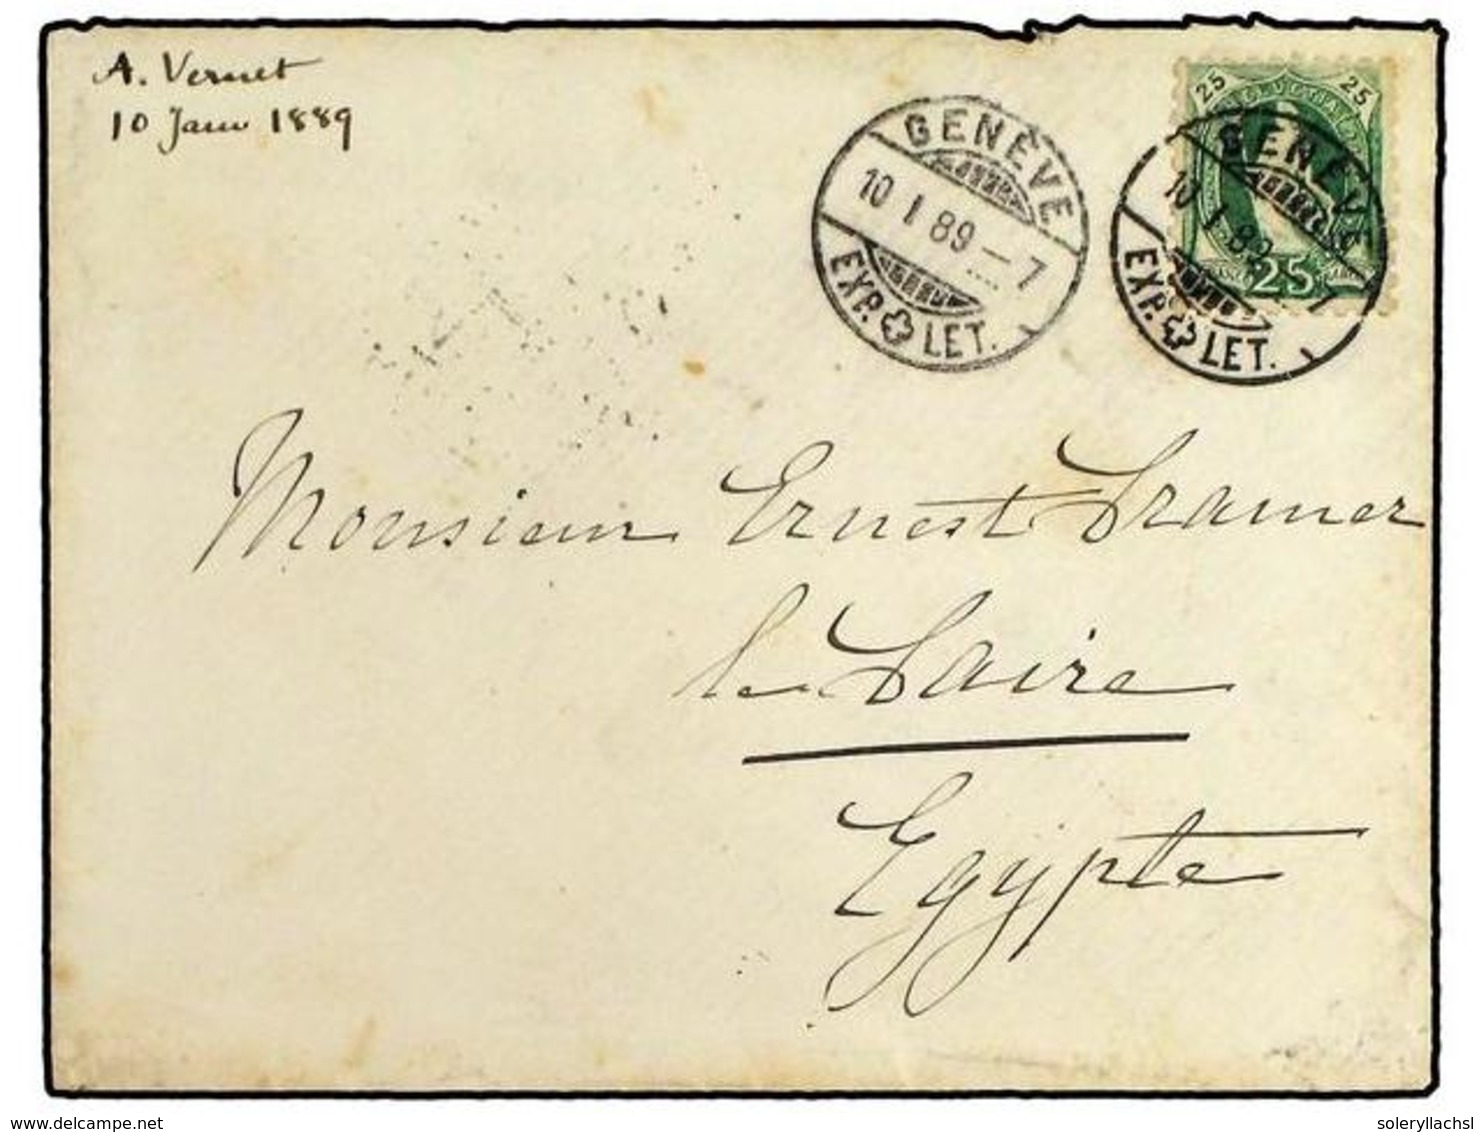 A. Vernet
10 Janv 1889
GENÈVE
10 I 89 – 7
EXP. LET.
25 25
GENÈVE
10 I 89
25
EXP. LET.
Monsieur Ernest Cramer
le Caire
Egypte
delcampe.net
soleryllachsl